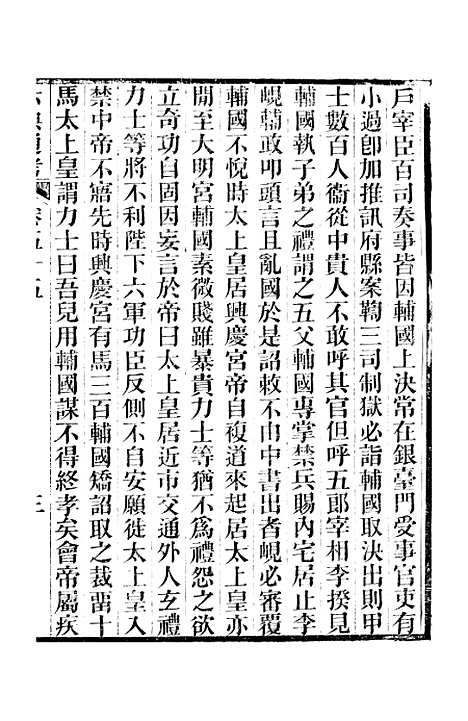 戶宰臣百司奏事皆因輔國上決常在銀臺門受事官吏有
小過卽加推訊府縣案鞫三司制獄必詣輔國取決出則甲
士數百人衞從中貴人不敢呼其官但呼五郎宰相李揆見
輔國執子弟之禮謂之五父輔國專掌禁兵賜內宅居止李
峴輔政叩頭言且亂國於是詔敕不由中書出者峴必審覆
輔國不悅時太上皇居興慶宮帝自複道來起居太上皇亦
閒至大明宮輔國素微賤雖暴貴力士等猶不爲禮怨之欲
立奇功自固因妄言於帝曰太上皇居近市交通外人玄禮
力士等將不利陛下六軍功臣反側不自安願徙太上皇入
禁中帝不寤先時興慶宮有馬三百輔國矯詔取之裁畱十
馬太上皇謂力士曰吾兒用輔國謀不得終孝矣會帝屬疾